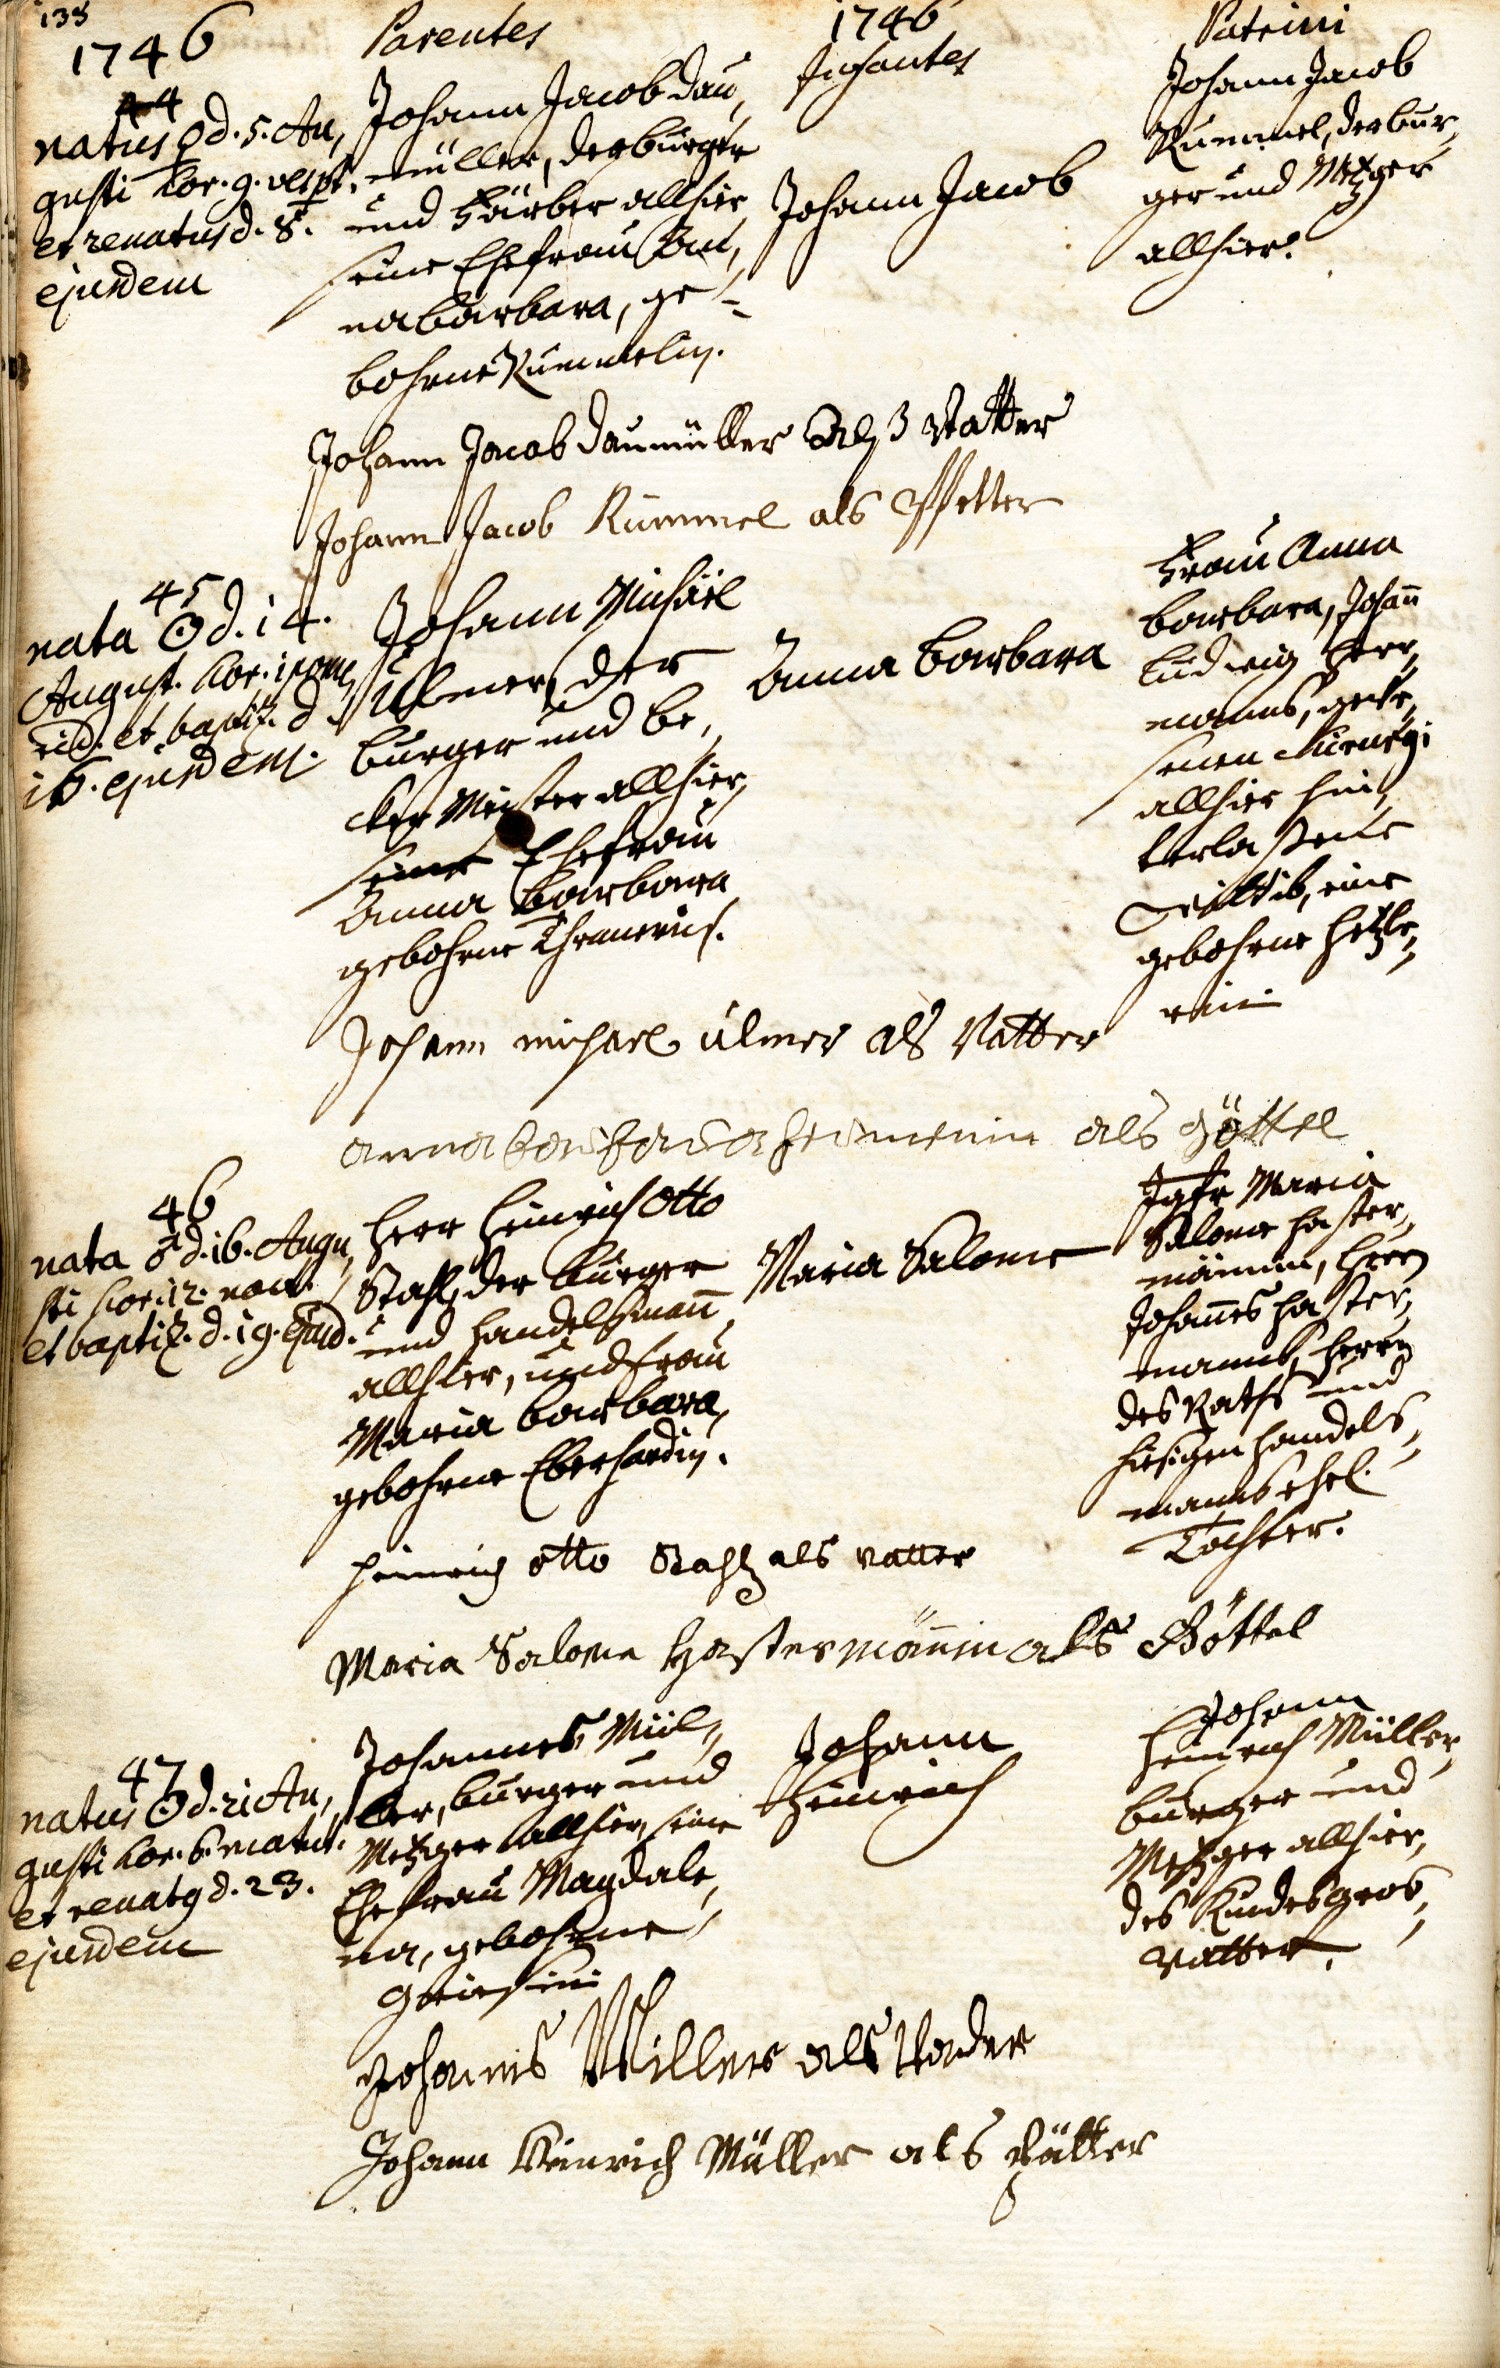 138
1746
Parentes
1746
Infantes
Patrini
44
natus ♀ d. 5. Au,
gusti hor. 9. vesp.
et renatus d. 8.
ejusdem
Johann Jacob Dau,
müller, der burger
und Färber allhier,
seine Ehefrau An,
na Barbara, ge-
bohrne Rümmelin.
Johann Jacob
Johann Jacob
Rümmel, der bur,
ger und Metzger
allhier.
Johann Jacob Daumüller Alß Vatter
Johann Jacob Rümmel als Pfetter
45
nata ☉ d. 14.
August. hor. 1 pome,
rid. et baptiz. d.
16. ejusdem.
Johann Michäel
Ulmer, der
burger und be,
cker Meister allhier,
seine Ehefrau
Anna Barbara
gebohrne
Anna Barbara
Frau Anna
barbara, Johañ
Ludwig Herr,
manns, gewe,
senen Chirurgi
allhier hin,
terlaßene
Wittib, eine
gebohrne Hetzle,
rin
Johann michael ulmer als Vatter
anna barbara hermenin als göttel
46
nata ♂ d. 16. Augu,
sti hor. 12. noct.
et baptiz. d. 19. ejusd.
Herr Heinrich Otto
Stahl, der burger
und Handelßmañ
allhier, und Frau
Maria Barbara,
gebohrne Eberhardin.
Maria Salome
Jgfr Maria
Salome Haster,
männin, Herrn
Johañes Haster,
manns, Herrn
des Raths und
hiesigen Handels,
manns ehel.
Tochter.
Heinrich Otto Stahl als vatter
Maria Salome Hastermäñin als Göttel
47
natus ☉ d. 21 Au,
gusti hor. 6. matut.
et renatg d. 23.
ejusdem
Johannes Mül,
ler, burger und
Metzger allhier, seine
Ehefrau Magdale,
na, gebohrne
Griesin
Johann
Heinrich
Johann
Heinrich Müller,
burger und
Metzger allhier,
des Kindes Gros,
vatter.
Johannes Müller als Vader
Johann Heinrich Müller als Pfätter